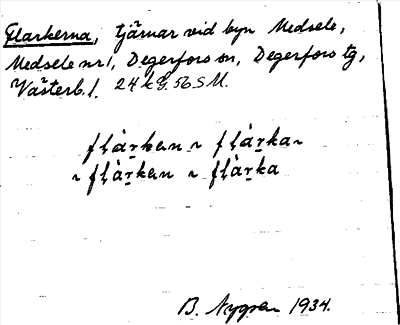 Flarkerna, tjärnar vid byn Medsele,
Medsele nr 1, Degerfors sn, Degerfors tg,
Västerb. l. 24 k G. 56 S M.
fḷàṟken ~ fḷàṟka ~
~ fḷàṟkan ~ fḷàṟka
B. Nygren 1934.